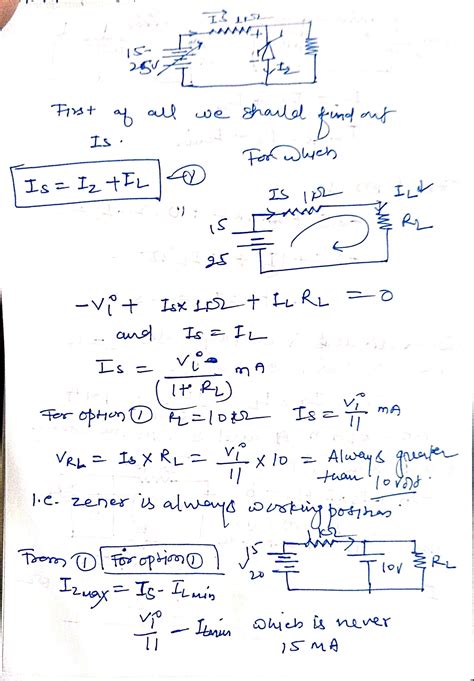 Is 1kΩ
15-
25V
Iz
First of all we should find out
Is.
For which
Is = Iz + IL
Is 1kΩ IL
15
25
RL
-Vi + Is x 1kΩ + IL RL = 0
and Is = IL
Is = Vi / (1 + RL) mA
For option ① RL = 10kΩ Is = Vi/11 mA
VRL = Is x RL = Vi/11 x 10 = Always greater
than 10 volt.
I.e. zener is always working
From ① For option ①
Izmax = Is - ILmin
1kΩ
15
V
20
10V
RL
Vi/11 - ILmin which is never
15 mA